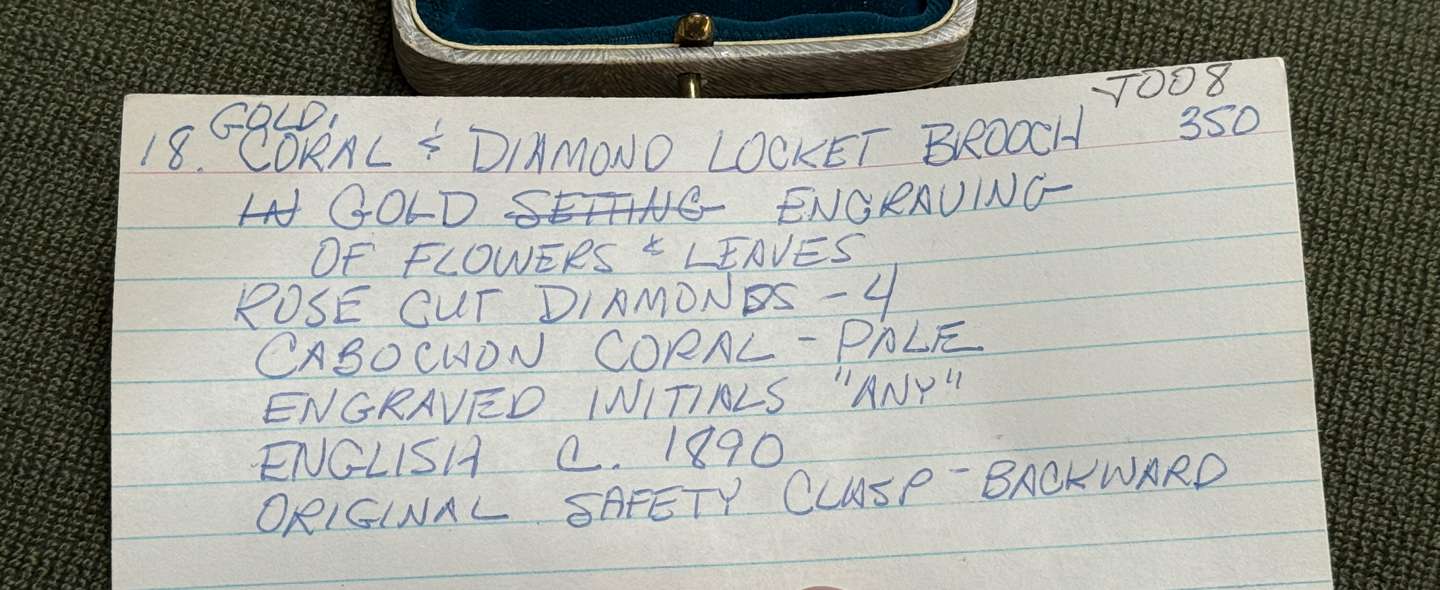 J008
GOLD,
18. CORAL & DIAMOND LOCKET BROOCH 350
IN GOLD SETTING ENGRAVING
OF FLOWERS & LEAVES
ROSE CUT DIAMONDS - 4
CABOCHON CORAL - PALE
ENGRAVED INITIALS "ANY"
ENGLISH C. 1890
ORIGINAL SAFETY CLASP - BACKWARD